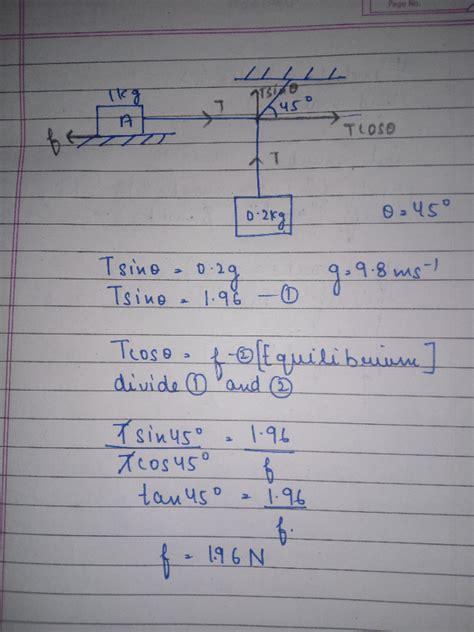 Page No.
1kg
A
T
Tsinθ
45°
Tcosθ
f
T
0.2kg
θ = 45°
Tsinθ = 0.2g
g = 9.8 ms⁻¹
Tsinθ = 1.96 — ①
Tcosθ = f - ② [Equilibrium]
divide ① and ②
Tsin45° = 1.96
Tcos45° f
tan45° = 1.96
f.
f = 1.96 N